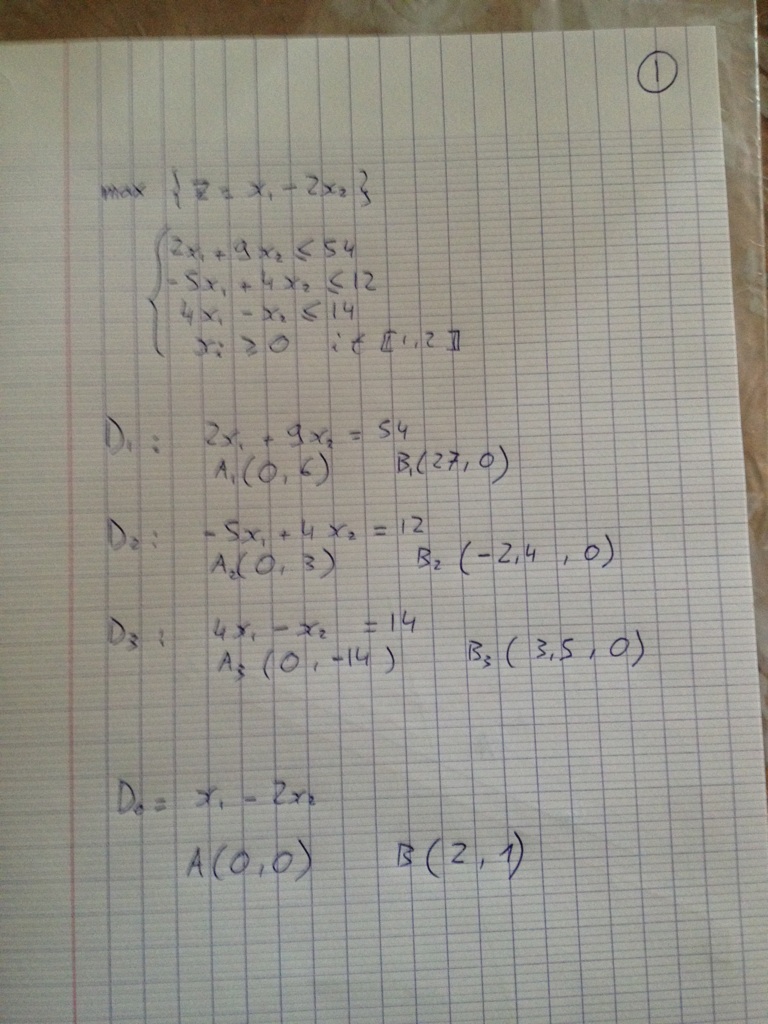 1
max { z = x₁ - 2x₂ }
2x₁ + 9x₂ ≤ 54
-5x₁ + 4x₂ ≤ 12
4x₁ - x₂ ≤ 14
xᵢ ≥ 0 i ∈ ⟦1,2⟧
D₁ : 2x₁ + 9x₂ = 54
A₁(0, 6) B₁(27, 0)
D₂ : -5x₁ + 4x₂ = 12
A₂(0, 3) B₂ (-2,4 , 0)
D₃ : 4x₁ - x₂ = 14
A₃ (0, -14) B₃ (3,5, 0)
D₀ = x₁ - 2x₂
A(0,0) B(2,1)